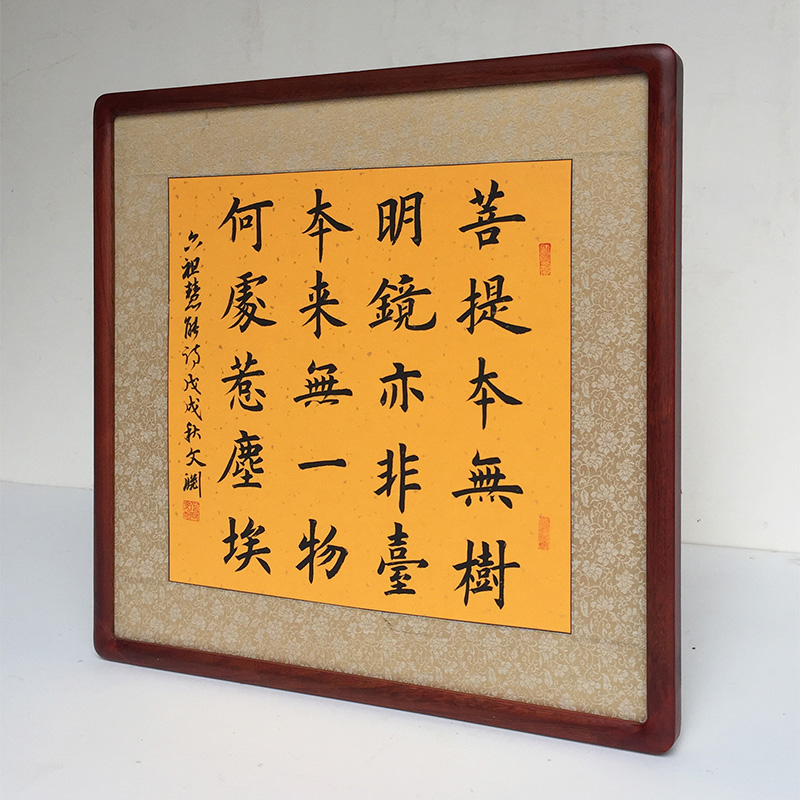 菩提本無樹
明鏡亦非臺
本来無一物
何處惹塵埃
六祖慧能诗戊戌秋文渊